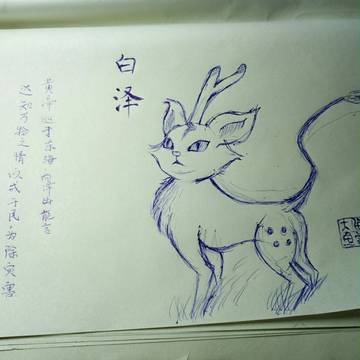 白泽
黄帝巡于东海 白泽出 能言
达知万物之情 以戒于民 为除灾害